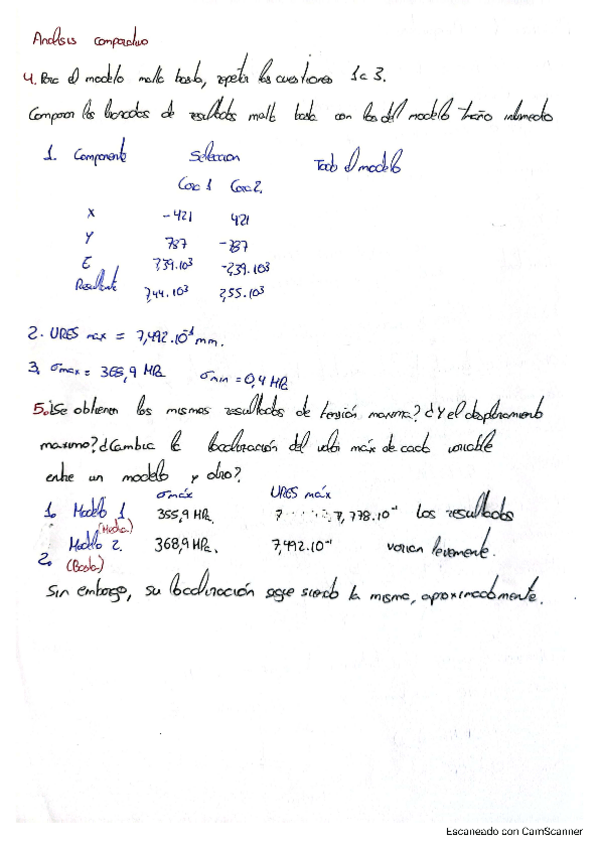 Análisis comparativo
4. Para el modelo malla basta, repetir las cuestiones 1 a 3.
Comparar los resultados malla basta con los del modelo tamaño intermedio
1. Componente Selección Todo el modelo
Cara 1 Cara 2.
X -421 421
Y 787 -787
Resultante
2. URES max = 7,492.10⁻¹ mm.
3. σmax = 368,9 MPa σmin = 0,4 MPa
5. ¿Se obtienen los mismos resultados de tensión maxima? ¿Y el desplazamiento
maximo? ¿Cambia la localización del valor máx de cada variable
entre un modelo y otro?
σmáx URES máx
1. Modelo 1. 355,9 MPa. 7,778.10⁻¹ Los resultados
(Media)
2. Modelo 2. 368,9 MPa. 7,492.10⁻¹ varian levemente.
(Basta)
Sin embargo, su localización sigue siendo la misma, aproximadamente.
Escaneado con CamScanner